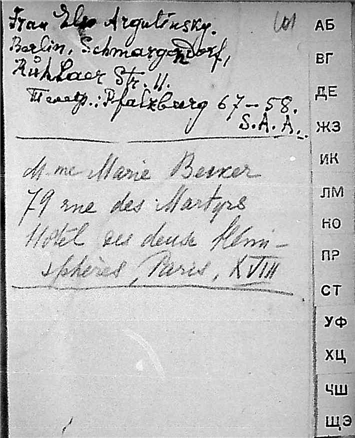 Frau Elsa Argutinsky.
Berlin, Schmargendorf,
Ruhlaer Str. 11.
Телеф.: Pfalzburg 67-58.
S.A.A.
M-me Marie Becker
79 rue des Martyrs
Hôtel des deux Hémi-
sphères, Paris, XVIII
101
АБ
ВГ
ДЕ
ЖЗ
ИК
ЛМ
НО
ПР
СТ
УФ
ХЦ
ЧШ
ЩЭ